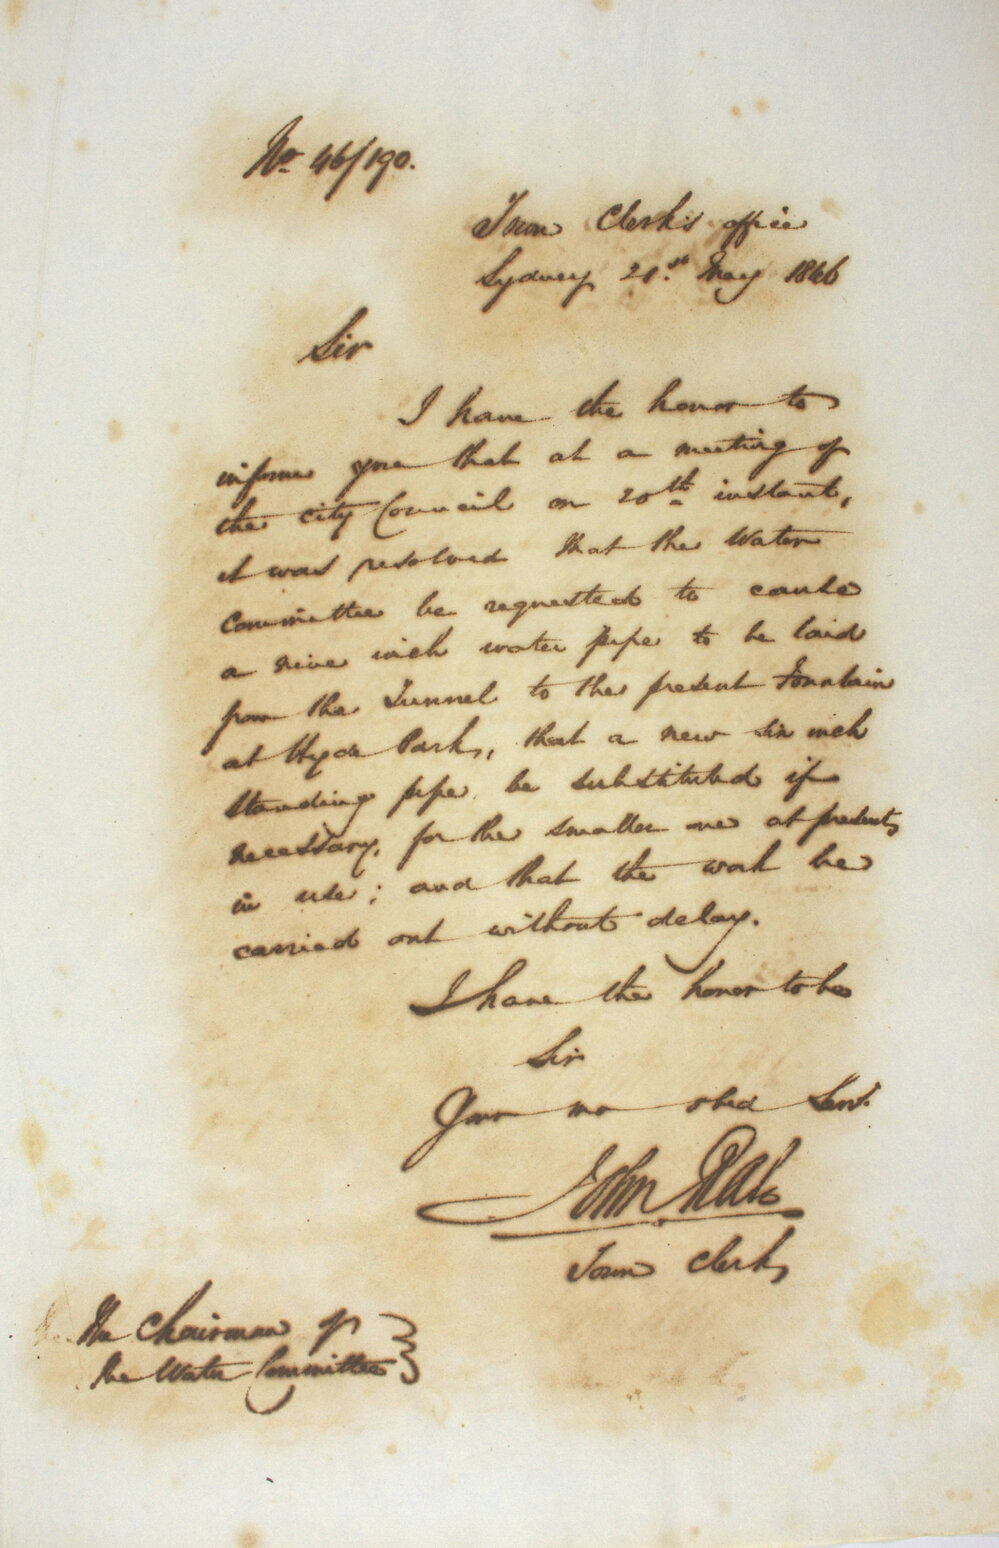 No. 46/190.
Town Clerk's office
Sydney 21.st May 1846
Sir
I have the honor to
inform you that at a meeting of
the City Council on 20th instant,
it was resolved that the Water
Committee be requested to cause
a nine inch water pipe to be laid
from the Tunnel to the present Fountain
at Hyde Park, that a new six inch
standing pipe, be substituted if
necessary, for the smaller one at present
in use; and that the work be
carried out without delay.
I have the honor to be
Sir
Your mo obed Serv.
John Rae
Town Clerk
The Chairman of
the Water Committee